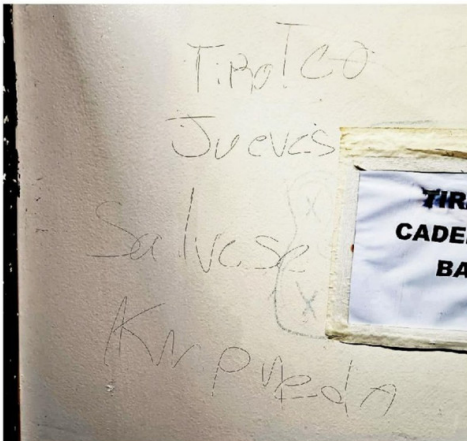 TiRoTeo
Jueves
Salvese
KN PUedA
TIR
CADE
BA